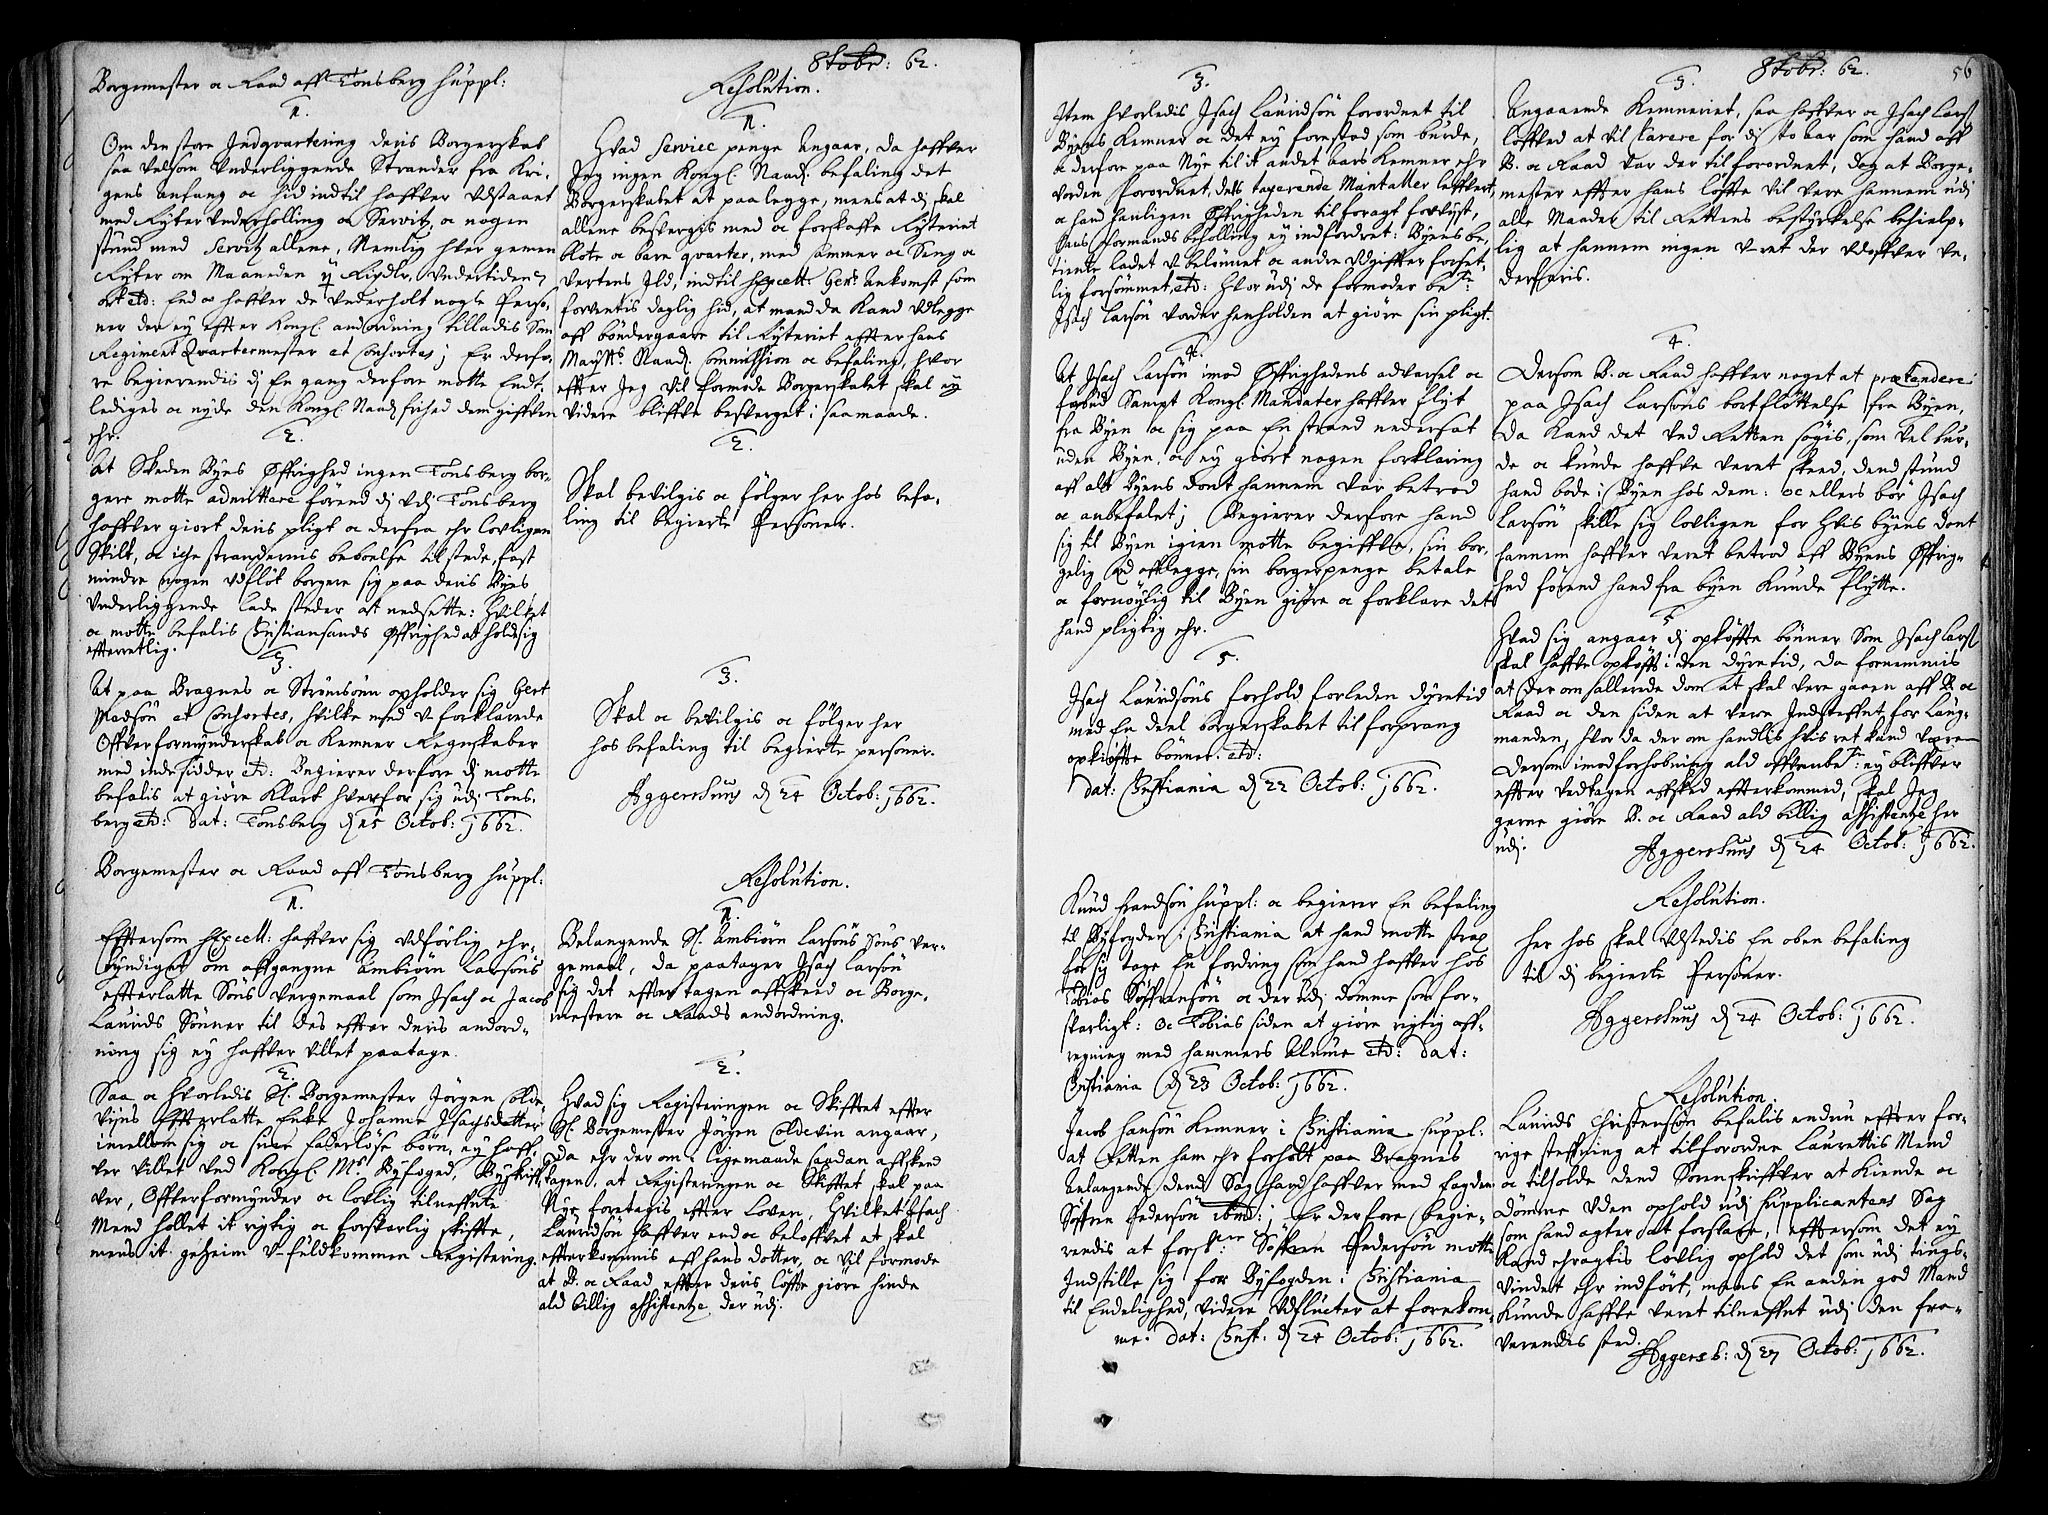 8tobr: 62.
Borgemester oc Raad aff Tonsberg suppl:
1.
Om den store Indqvartering deris Borgerskab
saa velsom Underliggende Strander fra Kri-
gens anfang oc hid indtil haffver udstaaet
med Ryter Underholling oc Servitz, oc nogen
stund med Servitz allene, Nemlig hver gemen
Ryter om Maaneden Rixdlr, Undertiden
ort etd: End oc haffver de Underholt nogle Perso-
ner der ey effter Kongl. andordning tilladis Som
Regiment Qvartermester et Consortes; Er derfo-
re begierendis dj En gang derfore motte Endt-
lediges oc nyde den Kongl. Naad. frihed dem giffven
ehr.
2.
At Skeden Byes Øffrighed ingen Tonsberg bor-
gere motte admittere förend dj udj Tonsberg
haffver giort deris pligt oc derfra ehr Lovligen
Skilt, oc icke strandernis beboelse tilstede, fast
mindre nogen udfløt borgere sig paa deris Byes
Underliggende lade steder at nedsette: Hvilket
oc motte befalis Christiansands Øffrighed at holde sig
efterretlig.
3.
At paa Bragnes oc Strømsöen opholder sig Gert
Madsön et Consortes, hvilke med U-forklarede
Offverformynderskab oc Kemner Regnskaber
med indesidder etd: Begierer derfore dj motte
befalis at giöre Klart hver for sig udj Tons-
berg etd: Dat: Tonsberg d 15 Octob: 1662.
Borgemester oc Raad aff Tonsberg suppl:
1.
Effter som Excell: haffver sig udförlig ehr-
kyndiget om affgangne Ambiörn Larsöns
effterlatte Söns Vergemaal som Isach oc Jacob
Laurids Sönner til des effter deris andord-
ning sig ey haffver villet paatage.
2.
Saa oc hvorledis Sl. Borgemester Jörgen Colde-
vijns Effterlatte Enke Johanne Isachsdatter
imellom sig oc sine faderlöse börn, ey haff-
ver villet ved Kongl. Ms. Byfoged, Byskriff-
ver, Offverformynder oc lovlig tilneffnte
Mend hollet it rigtig oc forsvarlig skiffte,
mens it geheim U-fuldkommen Registering.
Resolution.
1.
Hvad Service penge Angaar, da haffver
Jeg ingen Kongl. Naad. befaling det
Borgerskabet at paalegge, mens at dj skal
allene besvergis med oc forskaffe Ryteriet
blote oc bare qvarter, med Cammer oc Seng oc
Vertens Ild, indtil Excell: Gen. Ankomst som
forventis daglig hid, at mand da Kand udlegge
aff böndergaare til Ryteriet effter hans
Maytts. Naad. Commission oc befaling, hvor
effter Jeg vil formode Borgerskabet skal ey
videre bliffve besverget i saa maade.
2.
Skal bevilgis oc fölger her hos befa-
ling til begierte Personer.
3.
Skal oc bevilgis oc fölger her
hos befaling til begierte personer.
Aggershuus d 24 Octob: 1662.
Resolution.
1.
Belangende Sl. Ambiörn Larsöns Söns ver-
gemaal, da paatager Isach Larsön
sig det effter tagen affskeed oc Borge-
mestere oc Raads andordning.
2.
Hvad sig Registeringen oc Skifftet effter
Sl. Borgemester Jörgen Coldevin angaar,
Da ehr der om i ligemaade saadan affskeed
tagen, at Registeringen oc Skifftet skal paa
Nye foretagis effter Loven, Hvilket Isach
Lauridsön haffver end oc beloffvet at skal
efterkommis aff hans dotter, oc vil formode
at B. oc Raad effter deris Löffte giöre hinde
ald billig assistentze der udj.
8tobr: 62.
56
3.
Item hvorledis Isach Lauridsön forordnet til
Byens Kemner oc det ey forestod som burde,
oc derfore paa Nye til it andet aars Kemner ehr
vorden forordnet, dets taxerende Mantaller leffvert,
oc hand haanligen Øffrigheden til foragt forlyst,
hans Formands beholling ey indfordret: Byens be-
tiente ladet U-belönnet oc andre Udgiffter forset-
lig forsömmet, etd: Hvor udj de formoder bete:
Isach Larsön vorder henholden at giöre sin pligt.
4.
At Isach Larsön imod Øffrighedens advarsel oc
forbud Sampt Kongl. Mandater haffver flyt
fra Byen oc sig paa En strand nedersat
uden Byen, oc ey giort nogen forklaring
aff alt Byens dont hannem var betrod
oc anbefalet; Begierer derfore hand
sig til Byen igien motte begiffve, sin bor-
gelig Eed afflegge, sin borgerpenge betale
oc fornöylig til Byen giöre oc forklare det
hand pligtig ehr.
5.
Isach Lauridsöns forhold forleden dyretid
med En deel borgerskabet til forprang
opkiöffte bönner. etd:
dat: Christiania d 22 Octob: 1662.
Knud Frandsön suppl: oc begierer En befaling
til Byfogden i Christiania at hand motte strax
for sig tage En fordring som hand haffver hos
Tobias Söffrensön oc der udj dömme som for-
svarligt: oc Tobias siden at giöre rigtig aff-
regning med hammers Alume etd: dat:
Christiania d 23 Octob: 1662.
Jacob Hansön Kemner i Christiania suppl:
at Retten ham ehr forholt paa Bragnes
Anlangende dend Sag hand haffver med fogden
Söffren Pedersön ibid: ; Er derfore begie-
rendis at forskne: Söffren Pedersön motte
Indstille sig for Byfogden i Christiania
til Endelighed, videre udfluchter at forekom-
me: dat: Christ: d 24 Octob: 1662.
3.
Angaaende Kemneriet, saa haffver oc Isach Lars.
loffved at vil Cavere for dj to aar som hand aff
B. oc Raad var der til forordnet, dog at Borge-
mester effter hans löffte vil vere hannem udj
alle Maader til Rettens bestyrkelse behielp-
lig at hannem ingen U-ret der udoffver ve-
derfaris.
4.
Dersom B. oc Raad haffver noget at prætendere
paa Isach Larsöns bortfløttelse fra Byen,
da Kand det ved Retten sögis, som vel bur-
de oc kunde haffve veret skeed, dend stund
hand bode i Byen hos dem: oc ellers bör Isach
Larsön skille sig lovligen for Hvis byens dont
hannem haffver veret betrod aff Byens Øffrig-
hed förend hand fra byen Kunde flytte.
5
Hvad sig angaar dj opköffte bönner Som Isach Lars.
skal haffve opköfft i den dyretid, da fornemmis
at der om allerede dom at skal vere gaaen aff B. oc
Raad oc den siden at vere Indsteffnt for Laug-
manden, hvor da der om handlis hvis ret kand være
Dersom imod forhobning ald offvenbte: ey bliffver
effter vedtagen affsked effterkommed, skal Jeg
gerne giöre B. oc Raad ald billig assistentze her
udj.
Aggershuus d 24 Octob: 1662.
Resolution.
Her hos skal udstedis En oben befaling
til dj begierte Personer.
Aggershuus d 24 Octob: 1662.
Resolution.
Laurids Christensön befalis endnu effter for-
rige steffning at tilforordne Laurettis Mend
oc tilholde dend Sorenskriffver at Kiende oc
dömme uden ophold udj Supplicantens Sag
som hand agter at forstage, effter som det ey
Kand ehragtis lovlig ophold det som udj tings-
vindet ehr indfört, mens En anden god Mand
Kunde haffve veret tilneffnt udj den fra-
verendis sted.
Aggersh: d 27 Octob: 1662.